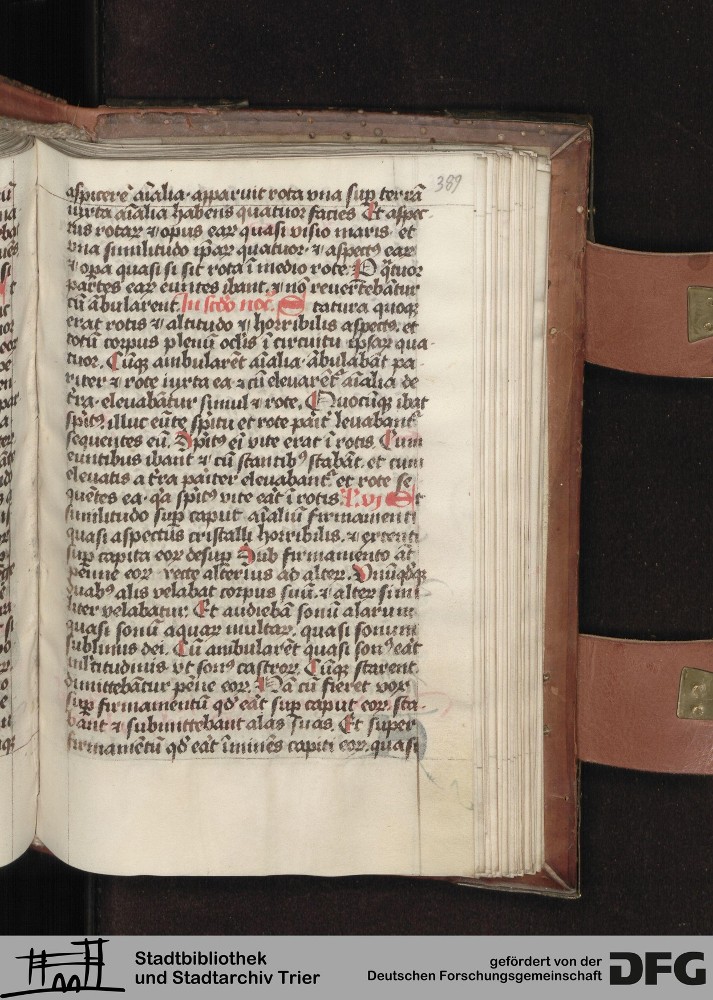 389
aspicerē aīalia· apparuit rota vna sup terrā
iuxta aīalia habens quatuor facies Et aspec-
tus rotaꝝ ⁊ opus eaꝝ quasi visio maris· et
vna similitudo ipaꝝ quatuor· ⁊ aspectꝰ eaꝝ
⁊ opa quasi si sit rota ī medio rote P q̄tuor
partes eaꝝ euntes ibant· ⁊ nō reuertebātur
cū ābularent In scdo noc̄ Statura quoqꝫ
erat rotis ⁊ altitudo ⁊ horribilis aspectꝰ· et
totū corpus plenū oclis ī circuitu ipsaꝝ qua-
tuor. Cūqꝫ ambularēt aīalia· ābulabāt pa-
riter ⁊ rote iuxta ea· ⁊ cū eleuarēt aīalia de
tra· eleuabātur simul ⁊ rote. Quocūqꝫ ibat
spūs· illuc eūte spītu et rote parit leuabant
sequentes eū. Spūs eī vite erat ī rotis. Cum
euntibus ibant ⁊ cū stantibꝰ stabāt. et cum
eleuatis a tra pariter eleuabant et rote se
quētes ea· qa spūs vite eāt ī rotis. L. vj Et
similitudo sup caput aīaliū firmamenti
quasi aspectus cristalli horribilis. ⁊ extenti
sup capita eoꝝ desup Sub firmamento āt
penne eoꝝ recte alterius ad alterꝝ. Vnūqdqꝫ
duabꝰ alis velabat corpus suū. ⁊ alterꝝ simi
liter velabatur. Et audiebā sonū alarum
quasi sonū aquaꝝ multaꝝ. quasi sonum
sublimis dei. Cū ambularēt quasi sonꝰ eāt
mltitudinis vt sonꝰ castroꝝ. Cūqꝫ starent.
dimittebātur pēne eoꝝ. Nā cū fieret vox
sup firmamentū qd eāt sup caput eoꝝ. sta-
bāt ⁊ submittebant alas suas. Et super
firmamētū qd eāt īminēs capiti eoꝝ. quasi
Stadtbibliothek
und Stadtarchiv Trier
gefördert von der
Deutschen Forschungsgemeinschaft
DFG